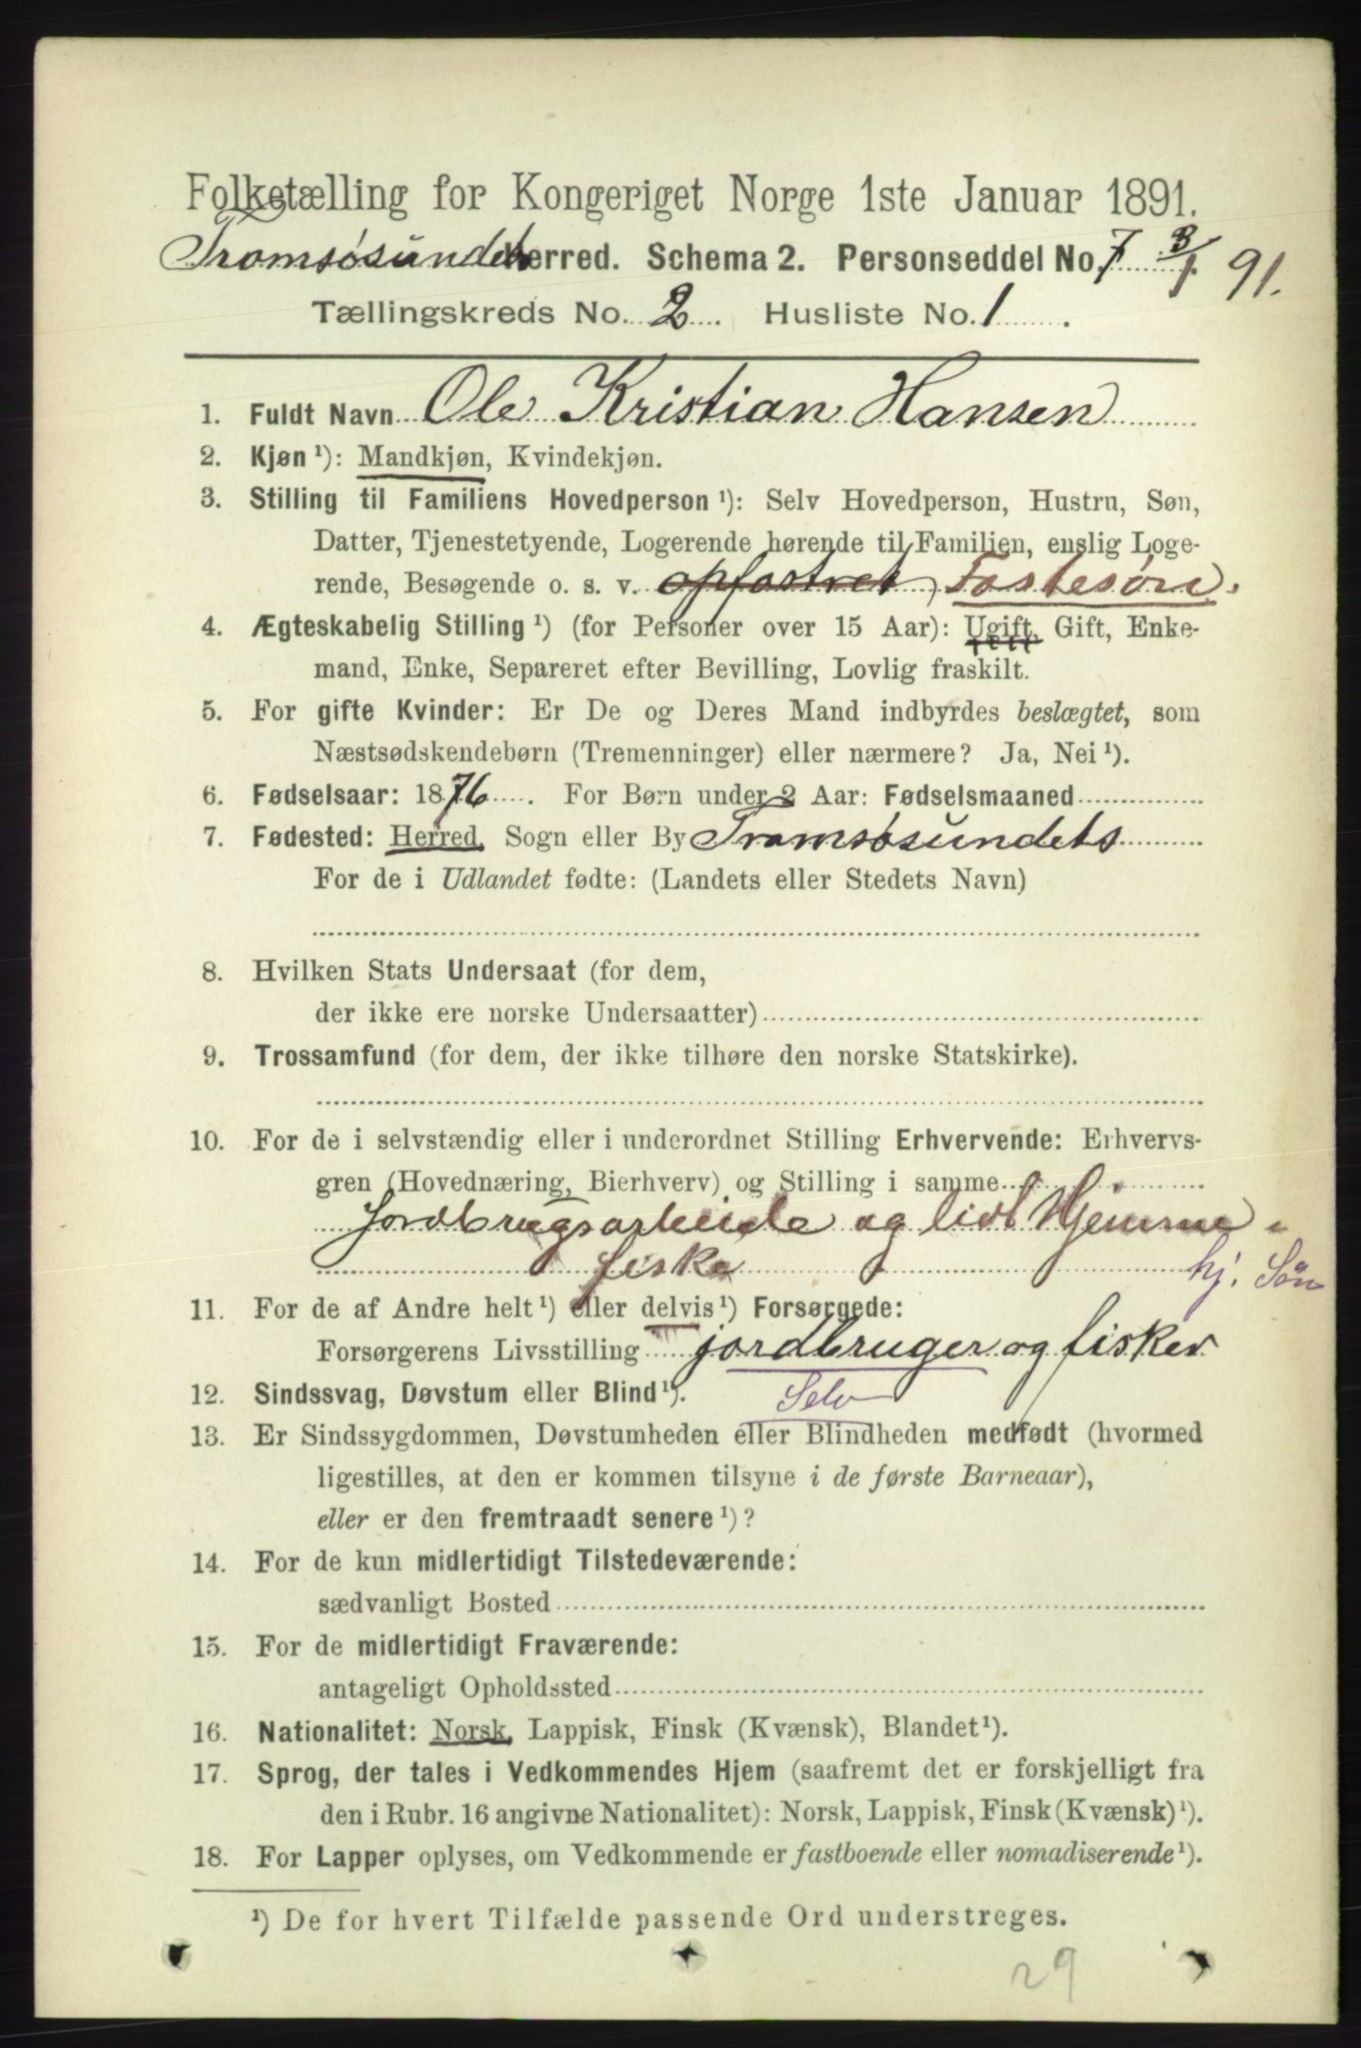 Folketælling for Kongeriget Norge 1ste Januar 1891.
Tromsøsundets Herred. Schema 2. Personseddel No. 7 3/1 91.
Tællingskreds No. 2. Husliste No. 1.
1. Fuldt Navn Ole Kristian Hansen
2. Kjøn ¹): Mandkjøn, Kvindekjøn.
3. Stilling til Familiens Hovedperson ¹): Selv Hovedperson, Hustru, Søn,
Datter, Tjenestetyende, Logerende hørende til Familien, enslig Loge-
rende, Besøgende o. s. v. opfostret, Fostesøn.
4. Ægteskabelig Stilling ¹) (for Personer over 15 Aar): Ugift, Gift, Enke-
mand, Enke, Separeret efter Bevilling, Lovlig fraskilt.
5. For gifte Kvinder: Er De og Deres Mand indbyrdes beslægtet, som
Næstsødskendebørn (Tremenninger) eller nærmere? Ja, Nei ¹).
6. Fødselsaar: 1876. For Børn under 2 Aar: Fødselsmaaned
7. Fødested: Herred, Sogn eller By Tromsøsundets
For de i Udlandet fødte: (Landets eller Stedets Navn)
8. Hvilken Stats Undersaat (for dem,
der ikke ere norske Undersaatter)
9. Trossamfund (for dem, der ikke tilhøre den norske Statskirke).
10. For de i selvstændig eller i underordnet Stilling Erhvervende: Erhvervs-
gren (Hovednæring, Bierhverv) og Stilling i samme
Jordbrugsarbeide og lidt Hjemme-
fiske hj. Søn
11. For de af Andre helt ¹) eller delvis ¹) Forsørgede:
Forsørgerens Livsstilling jordbruger og fisker
12. Sindssvag, Døvstum eller Blind ¹). Selv
13. Er Sindssygdommen, Døvstumheden eller Blindheden medfødt (hvormed
ligestilles, at den er kommen tilsyne i de første Barneaar),
eller er den fremtraadt senere ¹)?
14. For de kun midlertidigt Tilstedeværende:
sædvanligt Bosted
15. For de midlertidigt Fraværende:
antageligt Opholdssted
16. Nationalitet: Norsk, Lappisk, Finsk (Kvænsk), Blandet ¹).
17. Sprog, der tales i Vedkommendes Hjem (saafremt det er forskjelligt fra
den i Rubr. 16 angivne Nationalitet): Norsk, Lappisk, Finsk (Kvænsk) ¹).
18. For Lapper oplyses, om Vedkommende er fastboende eller nomadiserende ¹).
¹) De for hvert Tilfælde passende Ord understreges.
29